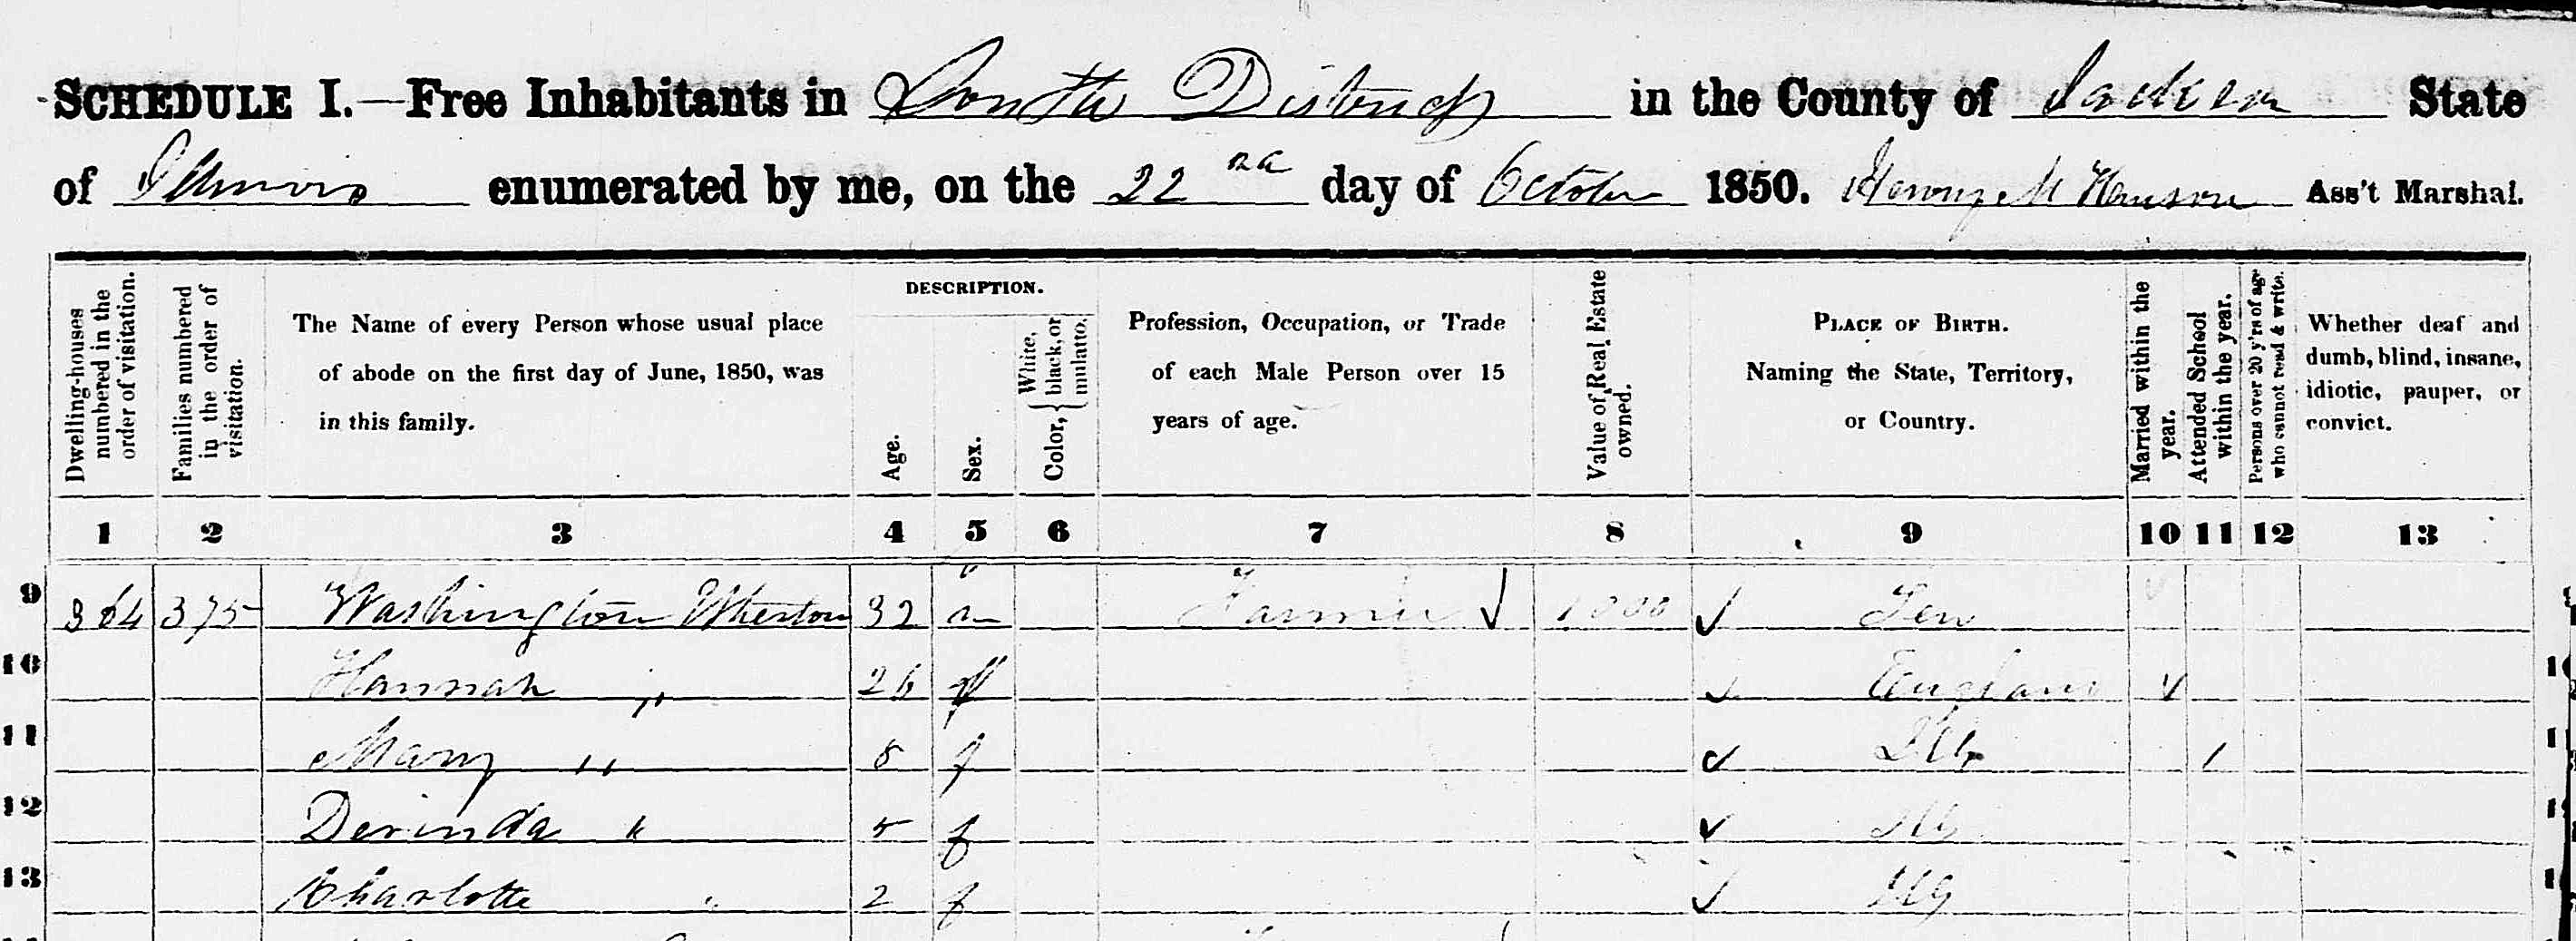 SCHEDULE I.—Free Inhabitants in South District in the County of Jackson State
of Illinois enumerated by me, on the 22nd day of October 1850. Henry M Hanson Ass't Marshal.
Dwelling-houses numbered in the order of visitation.
Families numbered in the order of visitation.
The Name of every Person whose usual place
of abode on the first day of June, 1850, was
in this family.
DESCRIPTION.
Age.
Sex.
Color, { White, black, or mulatto.
Profession, Occupation, or Trade
of each Male Person over 15
years of age.
Value of Real Estate owned.
PLACE OF BIRTH.
Naming the State, Territory,
or Country.
Married within the year.
Attended School within the year.
Persons over 20 y'rs of age who cannot read & write.
Whether deaf and
dumb, blind, insane,
idiotic, pauper, or
convict.
1 2 3 4 5 6 7 8 9 10 11 12 13
9 364 375 Washington Etherton 32 m Farmer √ 1000 √ Ten
10 Hannah " 26 f √ England √
11 Mary " 8 f √ Ills 1
12 Derinda " 5 f √ Ills
13 Charlotte " 2 f √ Ills